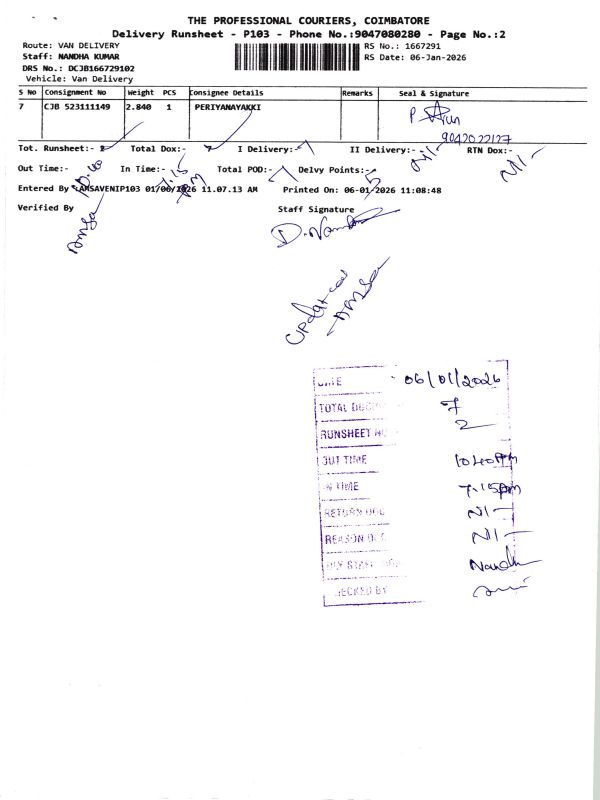 THE PROFESSIONAL COURIERS, COIMBATORE
Delivery Runsheet - P103 - Phone No.:9047080280 - Page No.:2
Route: VAN DELIVERY
Staff: NANDHA KUMAR
DRS No.: DCJB166729102
Vehicle: Van Delivery
RS No.: 1667291
RS Date: 06-Jan-2026
S No Consignment No Weight PCS Consignee Details Remarks Seal & Signature
7 CJB 523111149 2.840 1 PERIYANAYAKKI
9042022127
Tot. Runsheet:- 2 Total Dox:- 7 I Delivery:- 7 II Delivery:- Nil- RTN Dox:- Nil-
Out Time:- 10.40 In Time:- 7.15 PM Total POD:- 7 Delvy Points:- 5
Entered By :AMSAVENIP103 01/06/2026 11.07.13 AM Printed On: 06-01-2026 11:08:48
Verified By Staff Signature
Amsa D. Nandha
Updated
Amsa
DATE 06/01/2026
TOTAL 7
RUNSHEET 2
OUT TIME 10.40AM
IN TIME 7.15pm
RETURN Nil-
REASON Nil-
STAFF Nandha
CHECKED BY